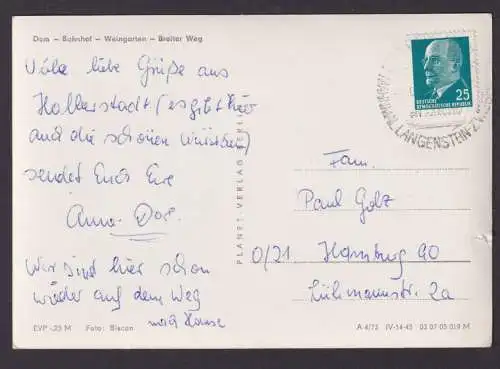 Dom – Bahnhof – Weingarten – Breiter Weg
Viele liebe Grüße aus
Halberstadt (es gibt hier
auch die schönen Würstchen)
sendet Euch Eure
Anna-Dor.
Wir sind hier schon
wieder auf dem Weg
nach Hause
PLANET-VERLAG BERLIN
25
DEUTSCHE
DEMOKRATISCHE REPUBLIK
MAHNMAL LANGENSTEIN-ZWIEBERGE
Fam.
Paul Golz
0/21 Hamburg 90
Lühmannstr. 2a
EVP -,25 M Foto: Biscan
A 4/73 IV-14-45 03 07 05 019 M